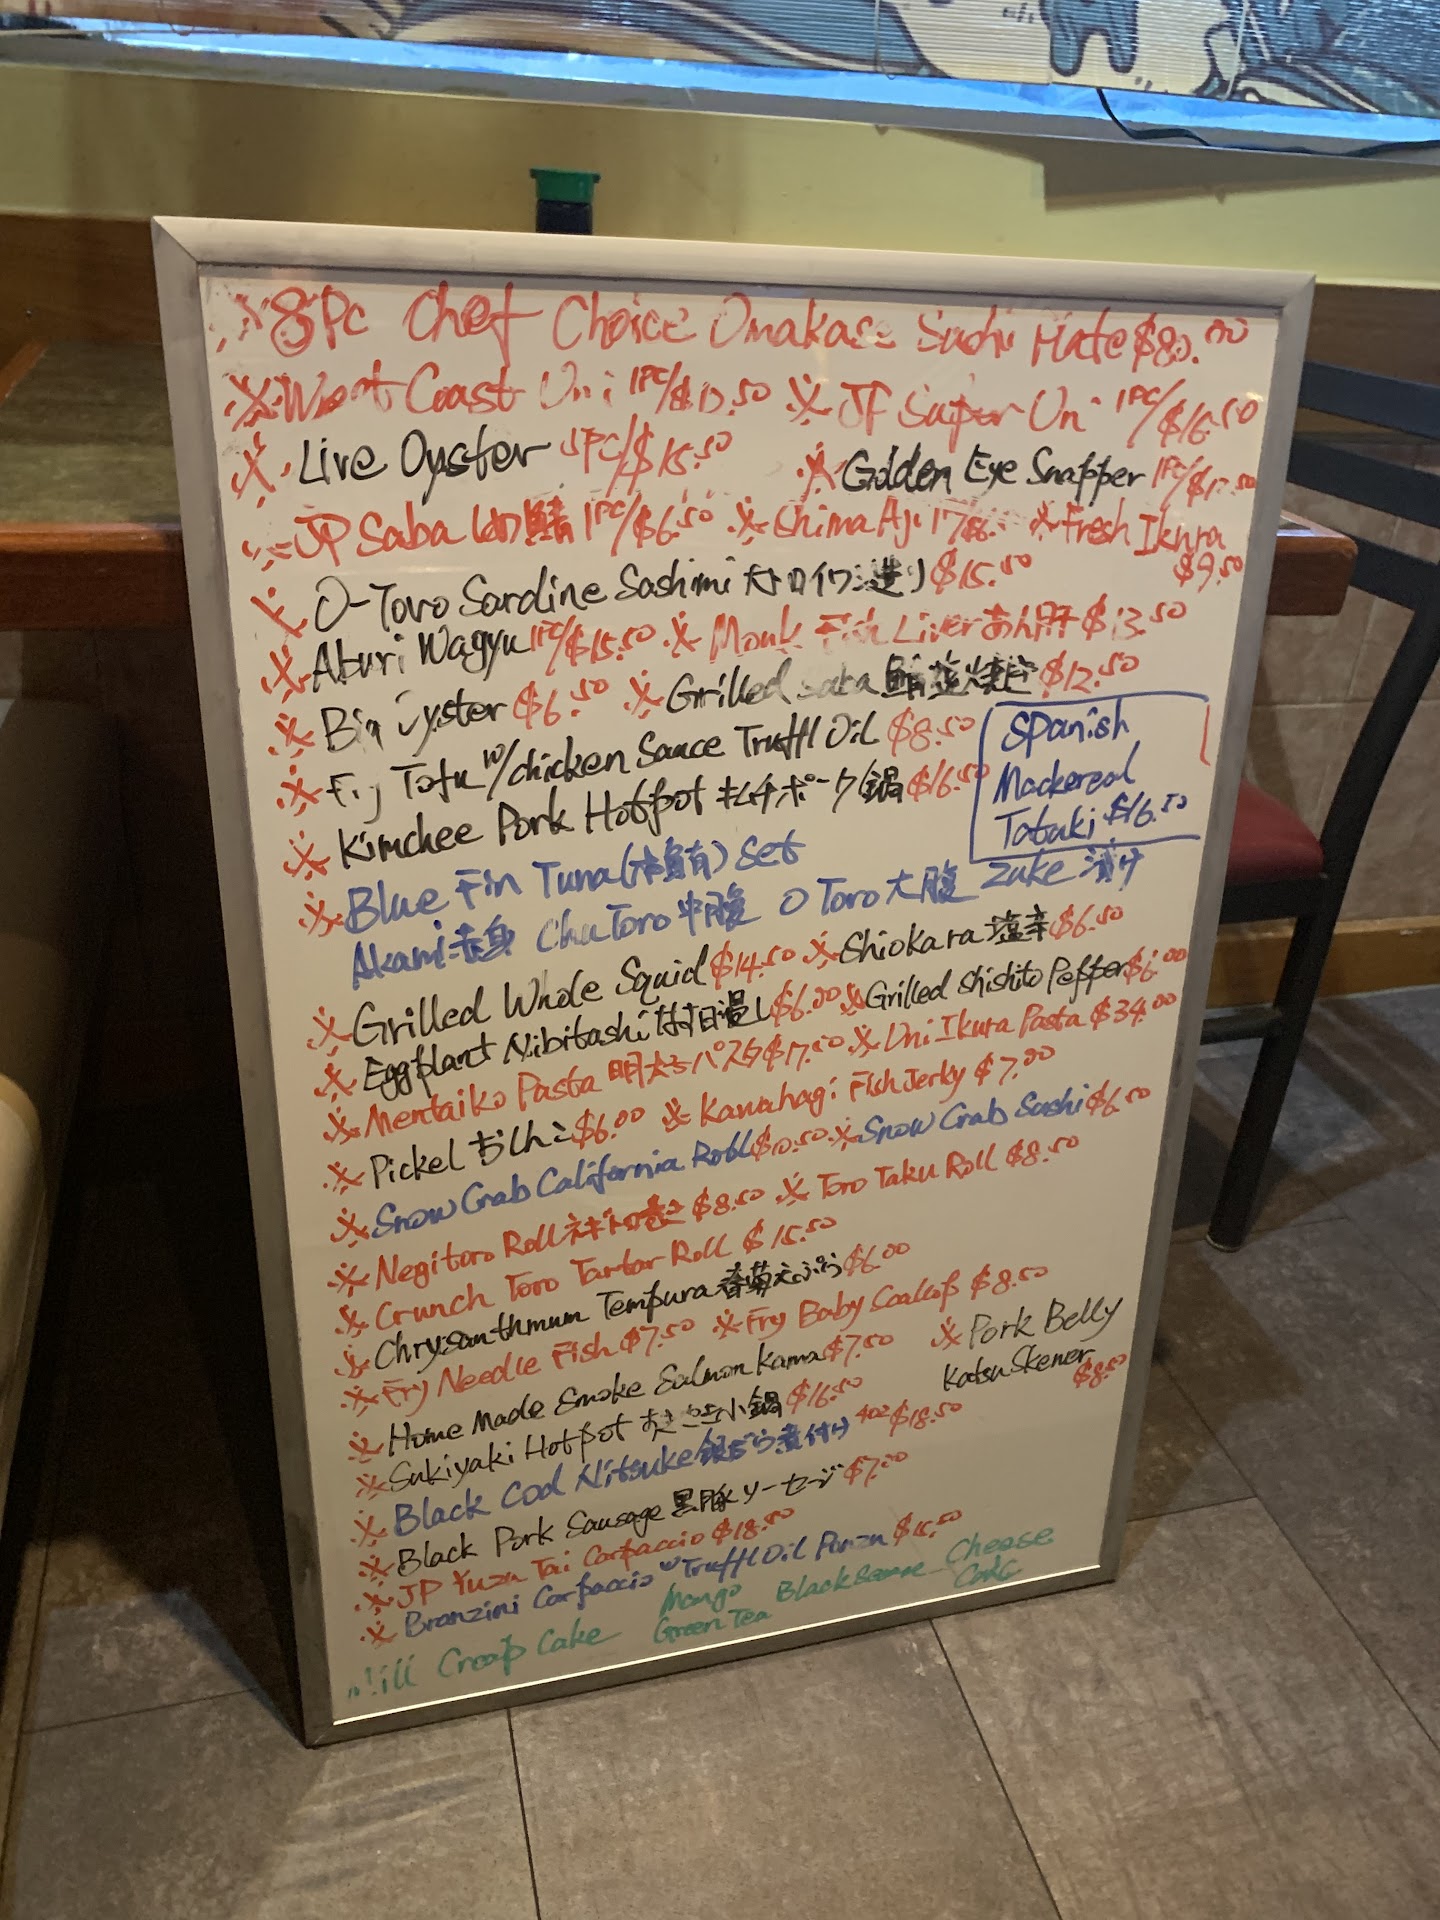 ※8Pc Chef Choice Omakase Sushi Plate $80.00
※West Coast Uni 1PC/ ※JP Super Uni 1PC/$16.50
※Live Oyster $15.50 ※Golden Eye Snapper 1PC/
※JP Saba しめ鯖 1PC/$6.50 ※Shima Aji ※Fresh Ikura
$9.50
※O-Toro Sardine Sashimi 大トロイワシ造り $15.50
※Aburi Wagyu 1PC/$15.50 ※Monk Fish Liver あん肝 $13.50
※Big Oyster $6.50 ※Grilled Saba 鯖塩焼き $12.50
※Fry Tofu w/chicken Sauce Truffl Oil $8.50
※Kimchee Pork Hotpot キムチポーク鍋 $16.50
Spanish
Mackereal
Tataki $16.50
※Blue Fin Tuna(本鮪) Set
Akami 赤身 Chu Toro 中腹 O Toro 大腹 Zuke 漬け
※Grilled Whole Squid $14.50 ※Shiokara 塩辛 $6.50
※Eggplant Nibitashi $6.00 ※Grilled Shishito Pepper $6.00
※Mentaiko Pasta 明太子パスタ $17.50 ※Uni Ikura Pasta $34.00
※Pickel おしんこ $6.00 ※Kawahagi Fish Jerky $7.00
※Snow Crab California Roll $10.50 ※Snow Crab Sushi $6.50
※Negitoro Roll ネギトロ巻き $8.50 ※Toro Taku Roll $8.50
※Crunch Toro Tartar Roll $15.50
※Chrysanthmum Tempura 春菊天ぷら $6.00
※Fry Needle Fish $7.50 ※Fry Baby Scallop $8.50
※Home Made Smoke Salmon Kama $7.50 ※Pork Belly
Katsu Skener
$8.50
※Sukiyaki Hotpot 小鍋 $16.50
※Black Cod Nitsuke 銀だら煮付け 4oz $18.50
※Black Pork Sausage 黒豚ソーセージ $7.00
※JP Yuzu Tai Carpaccio $18.50
※Branzini Carpaccio w Truffl Oil Ponzu $15.50
Mill Creap Cake Mango Black Sesame Cheese
Green Tea Cake